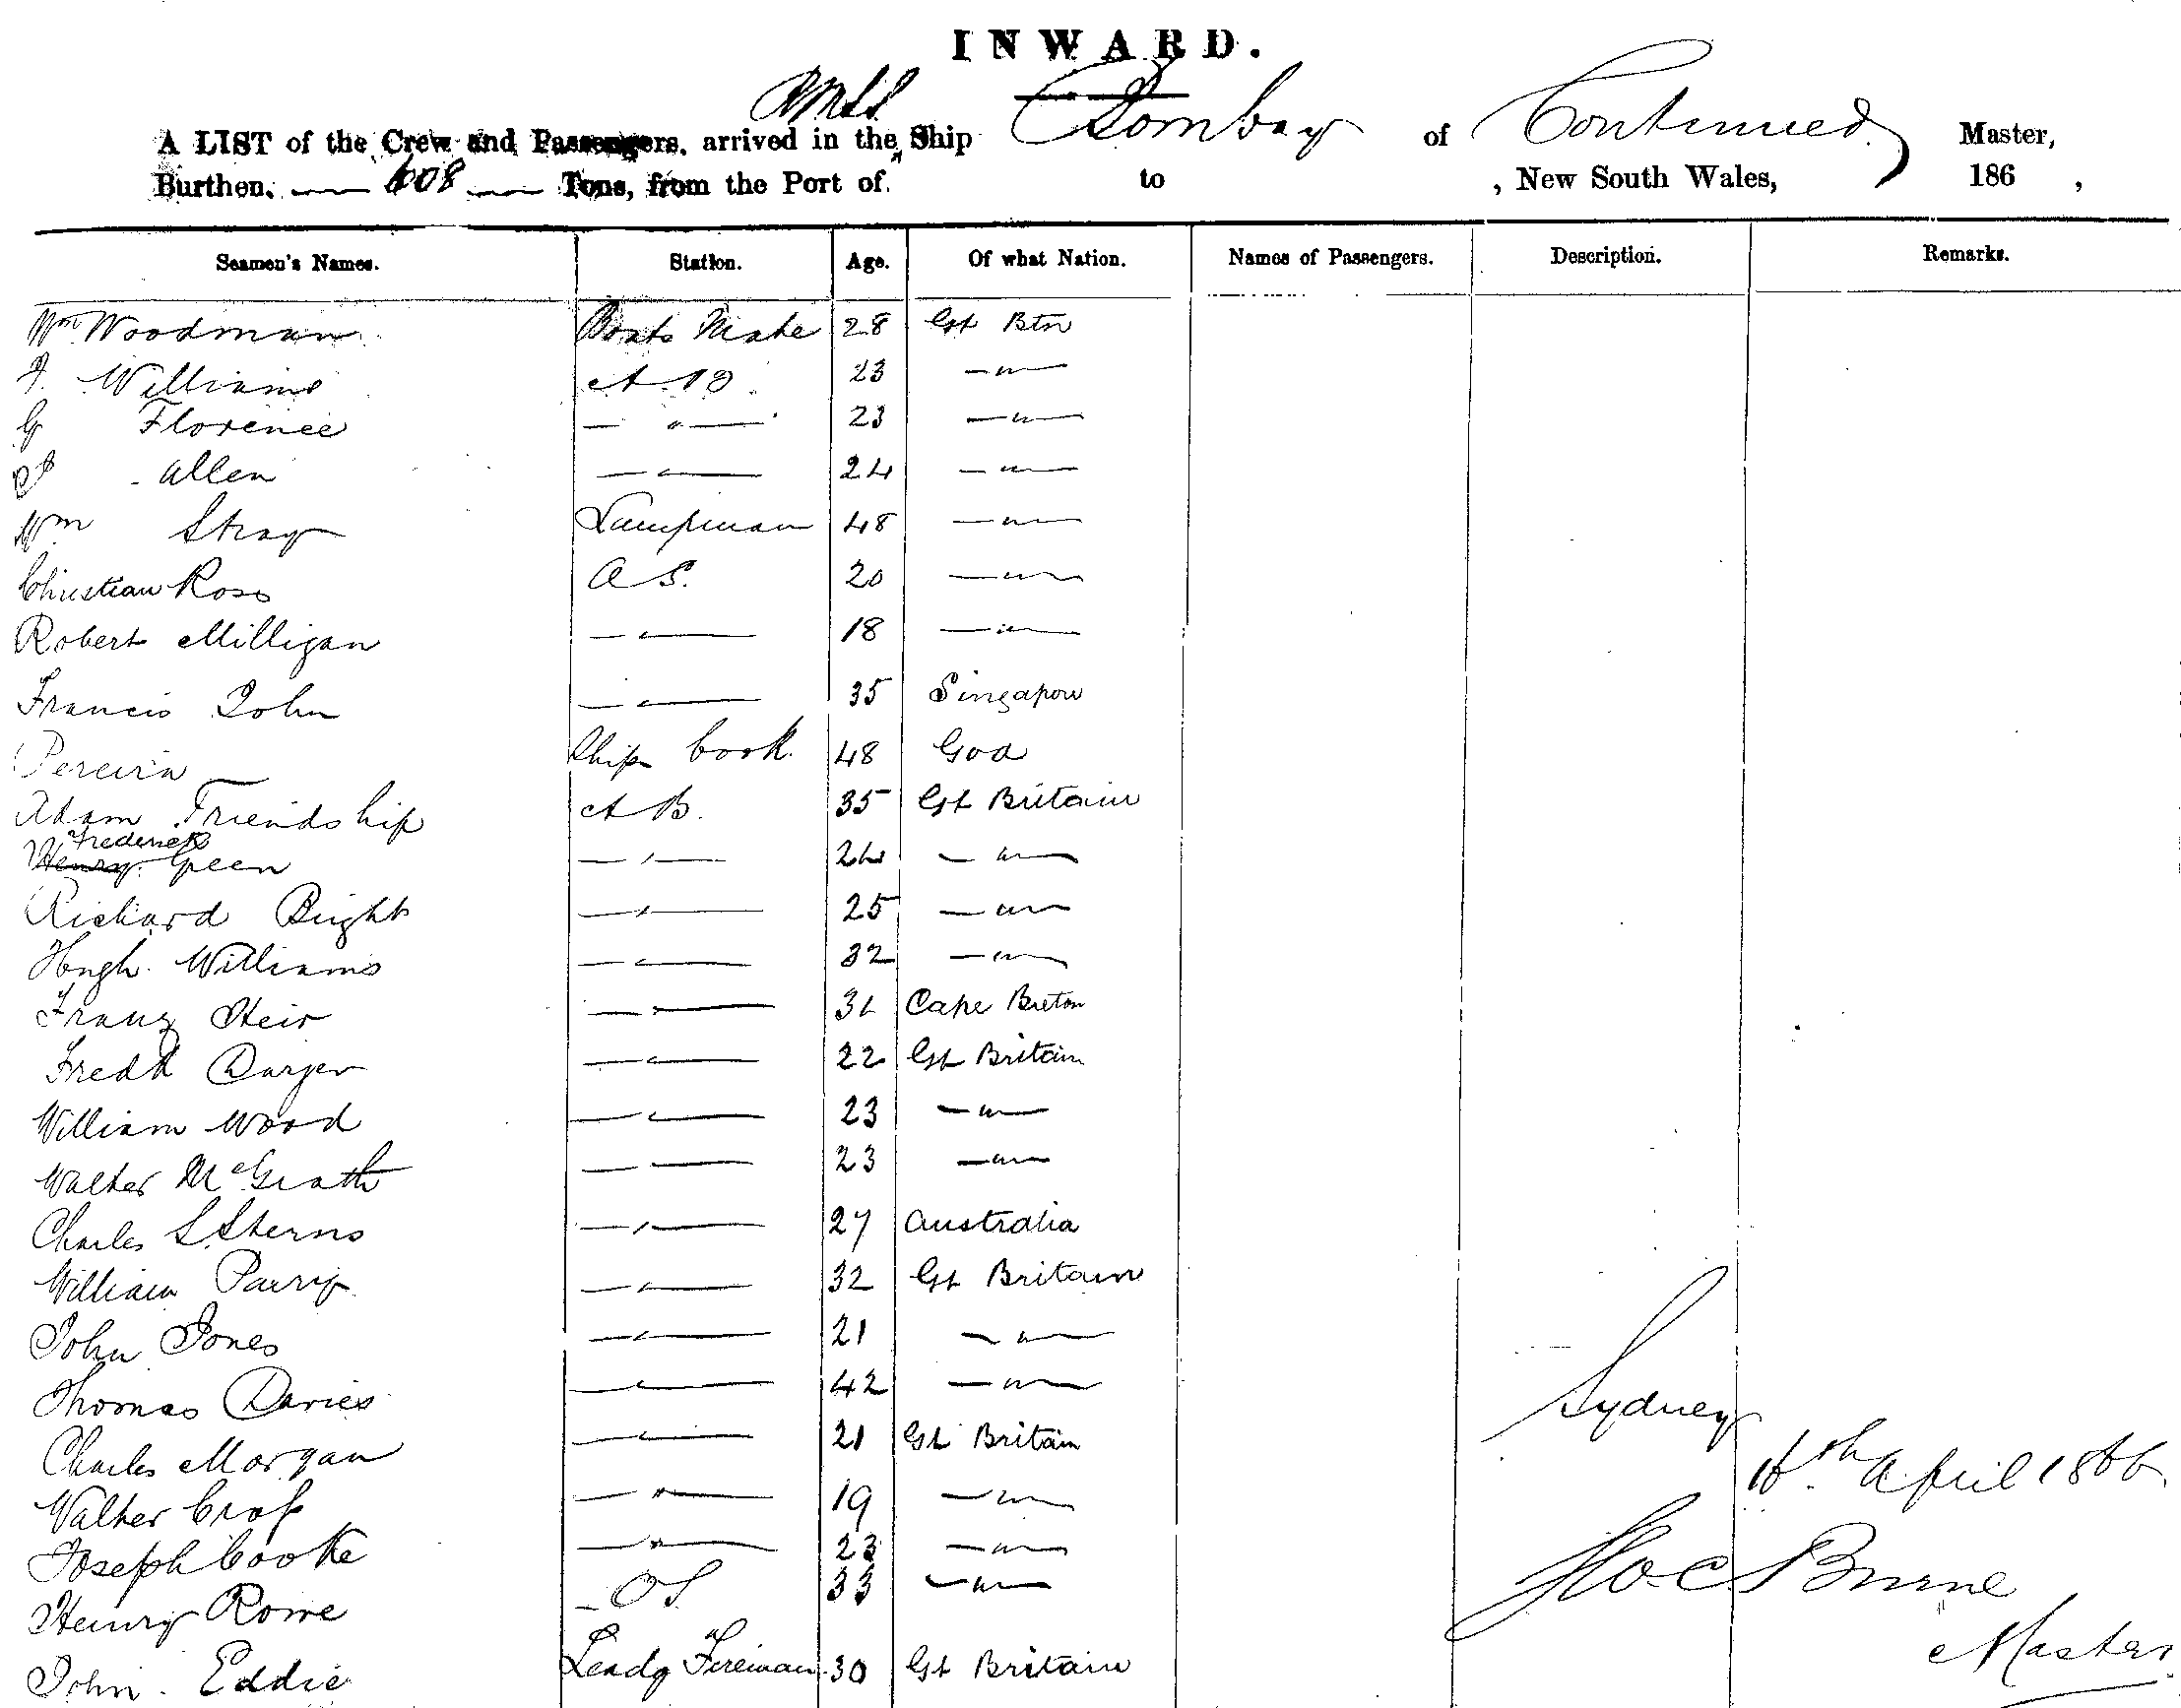 INWARD.
RMSS
A LIST of the Crew and Passengers, arrived in the Ship Bombay of Continued Master,
Burthen, 608 Tons, from the Port of to , New South Wales, 186 ,
Seamen's Names. Station. Age. Of what Nation. Names of Passengers. Description. Remarks.
Wm Woodman Boats Mate 28 Gt Btn
Williams AB 23 — " —
G Florence — " — 23 — " —
Allen — " — 24 — " —
Wm Stray Lampman 48 — " —
Christian Ross O S. 20 — " —
Robert Milligan — " — 18 — " —
Francis John — " — 35 Singapore
Pereira Ship Cook 48 Goa
Adam Friendship A B. 35 Gt Britain
Frederick
Henry Green — " — 24 — " —
Richard Bright — " — 25 — " —
Hugh Williams — " — 32 — " —
Franz — " — Cape Breton
Fredk Darger — " — 22 Gt Britain
William Wood — " — 23 — " —
Walter McGrath — " — 23 — " —
Charles S. Sterns — " — 27 Australia
William Parry — " — 32 Gt Britain
John Jones — " — 21 — " —
Thomas Davies — " — 42 — " —
Charles Morgan — " — 21 Gt Britain
Walter Cross — " — 19 — " —
Joseph Cooke — " — 23 — " —
Henry Rowe OS 33 — " —
John Eddie Leadg Fireman 30 Gt Britain
Sydney
16th April 1866
Burne
Master